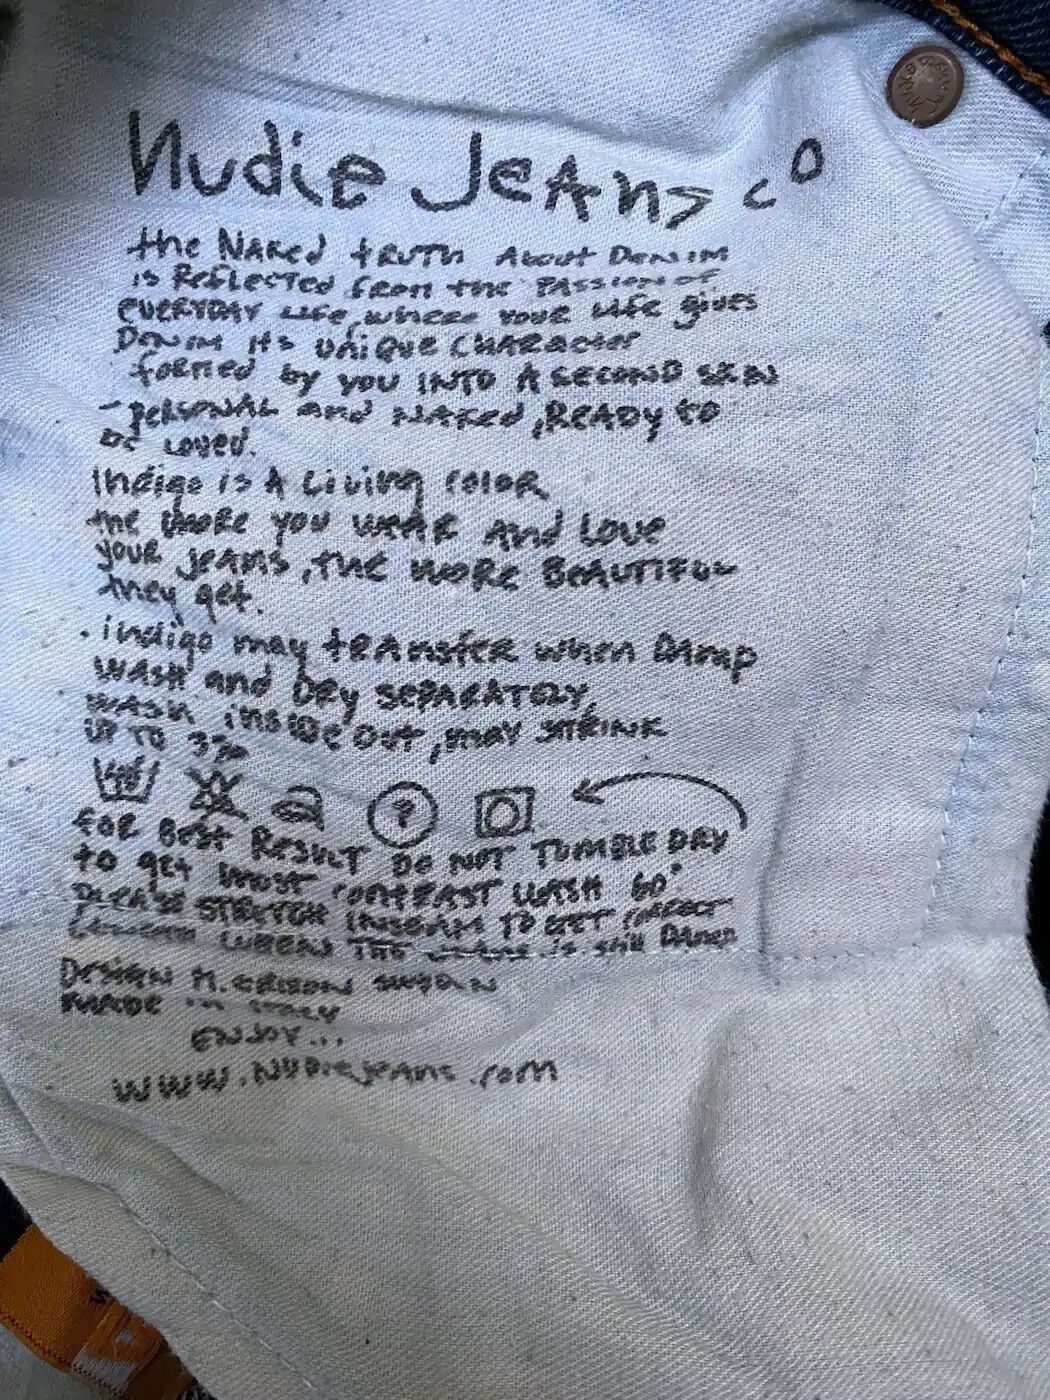 Nudie Jeans co
the NAKed tRUTH About DENIM
is ReflECTED from the PASSION OF
EVERYDAY LIFE, where YOUR LIFE gives
DENIM its UNIQUE CHARACter
formed by YOU INTO A SECOND SKIN
- PERSONAL and NAKED, READY to
be Loved.
Indigo is A Living COLOR
the MORE YOU WEAR And LOVE
YOUR JEANS, THE MORE BEAUTIFUL
they get.
. indigo may tRAnsfER when DAmp
WASH and DRY SEPARATELY,
WASH inside Out, may SHRINK
UP TO 3%
40 ?
for Best RESULT DO NOT TUMBLE DRY
to get most CONTRAST WASH 60°
PLEASE STRETCH INSEAM TO GET CORRECT
WHEN THE is still DAmp
DESIGN M. ERIXON SWEDEN
MADE in ITALY
ENJOY...
WWW.NUDIEJEANS.COM